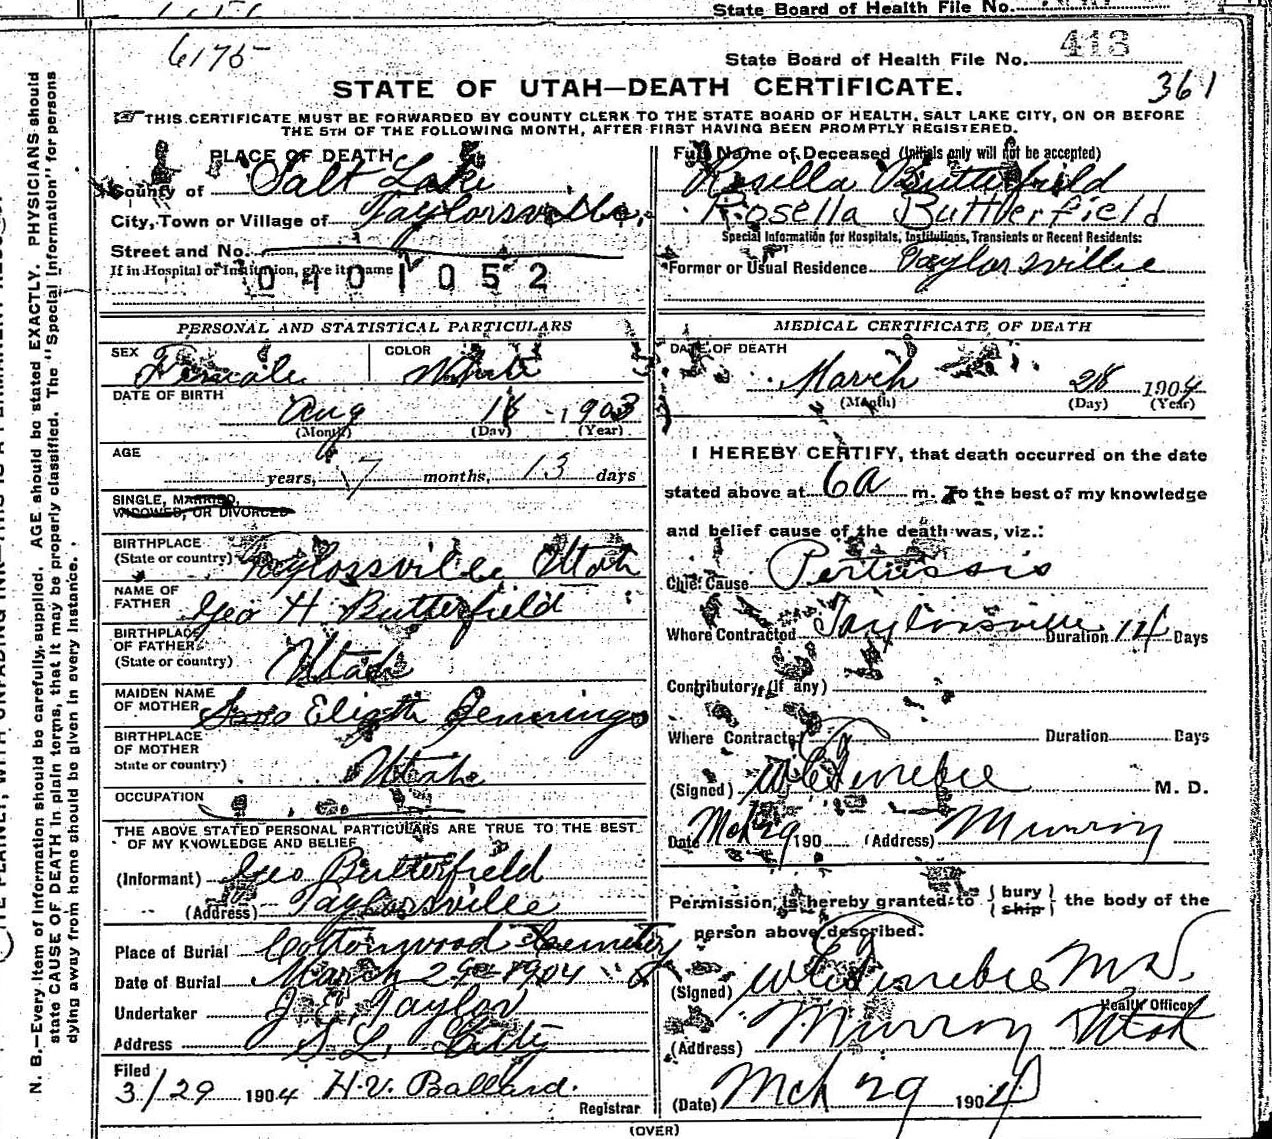 State Board of Health File No.
6175
State Board of Health File No. 413
361
STATE OF UTAH—DEATH CERTIFICATE.
THIS CERTIFICATE MUST BE FORWARDED BY COUNTY CLERK TO THE STATE BOARD OF HEALTH, SALT LAKE CITY, ON OR BEFORE
THE 5TH OF THE FOLLOWING MONTH, AFTER FIRST HAVING BEEN PROMPTLY REGISTERED.
PLACE OF DEATH
County of Salt Lake
City, Town or Village of Taylorsville
Street and No.
If in Hospital or Institution, give its name
0401052
PERSONAL AND STATISTICAL PARTICULARS
SEX Female COLOR White
DATE OF BIRTH
Aug 18 1903
(Month) (Day) (Year)
AGE
years, 7 months, 13 days
SINGLE, MARRIED,
WIDOWED, OR DIVORCED
BIRTHPLACE
(State or country) Taylorsville Utah
NAME OF
FATHER Geo H Butterfield
BIRTHPLACE
OF FATHER
(State or country) Utah
MAIDEN NAME
OF MOTHER Elizth Jennings
BIRTHPLACE
OF MOTHER
State or country) Utah
OCCUPATION
THE ABOVE STATED PERSONAL PARTICULARS ARE TRUE TO THE BEST
OF MY KNOWLEDGE AND BELIEF
(Informant) Geo Butterfield
(Address) Taylorsville
Place of Burial Cottonwood Cemetery
Date of Burial March 29 1904
Undertaker J. E. Taylor
Address S. L. City
Filed
3/29 1904 H. V. Ballard.
Registrar
(OVER)
Full Name of Deceased (Initials only will not be accepted)
Rosella Butterfield
Rosella Butterfield
Special Information for Hospitals, Institutions, Transients or Recent Residents:
Former or Usual Residence Taylorsville
MEDICAL CERTIFICATE OF DEATH
DATE OF DEATH
March 28 1904
(Month) (Day) (Year)
I HEREBY CERTIFY, that death occurred on the date
stated above at 6 a m. To the best of my knowledge
and belief cause of the death was, viz.:
Chief Cause Pertussis
Where Contracted Taylorsville Duration 14 Days
Contributory (if any)
Where Contracted Duration Days
(Signed) M. D.
Date Mch 29 190 (Address) Murray
Permission is hereby granted to { bury ship } the body of the
person above described.
(Signed) M D.
Health Officer
(Address) Murray Utah
(Date) Mch 29 1904
N. B.—Every item of information should be carefully supplied. AGE should be stated EXACTLY. PHYSICIANS should
state CAUSE OF DEATH in plain terms, that it may be properly classified. The "Special Information" for persons
dying away from home should be given in every instance.